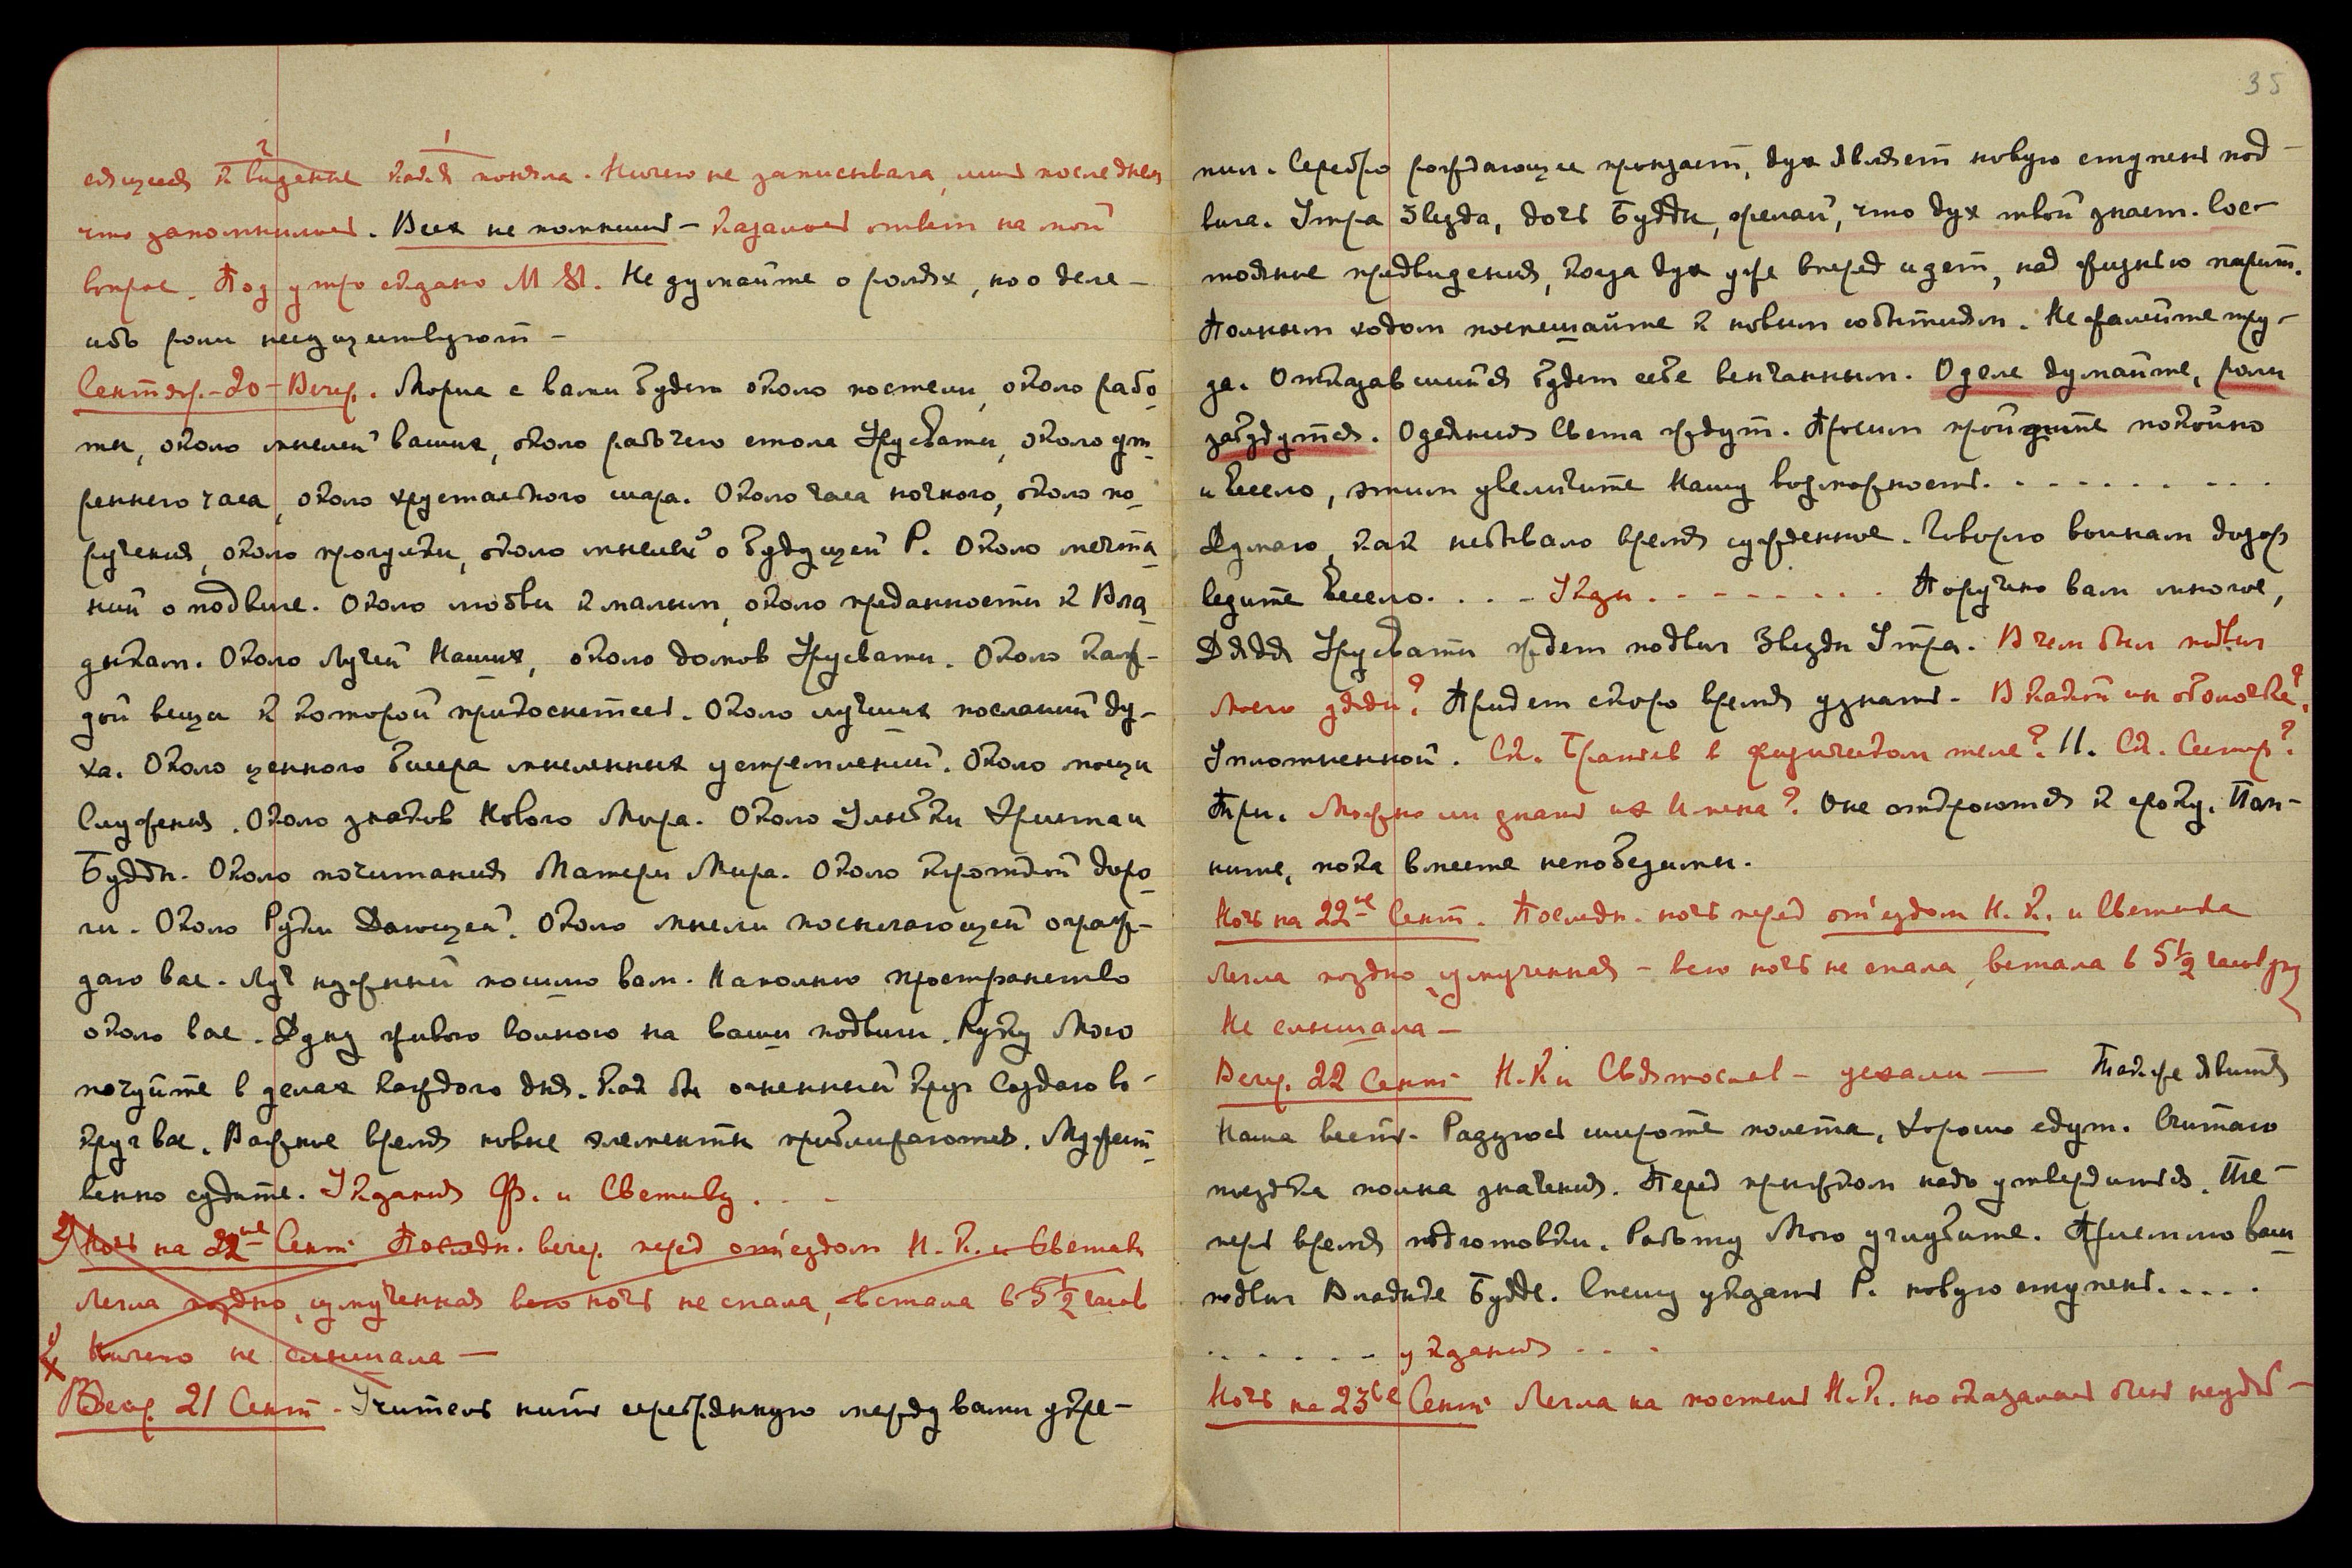 сящееся к видение как я поняла. Ничего не записывала, лишь последнее
что запомнилось. Всех не помнишь – казалось ответ на мой
вопрос. Под утро сказано М. М. Не думайте о ролях, но о деле –
ибо роли несуществуют –
Сентябр. – 20 – Вечер. Мория с вами будет около постели, около рабо-
ты, около мыслей ваших, около рабочего стола Урусвати, около ут-
реннего часа, около хрустального шара. Около часа ночного, около по-
ручения, около прогулки, около мыслей о будущей Р. Около мечта-
ний о подвиге. Около любви к малым, около преданности к Вла-
дыкам. Около Лучей Наших, около домов Урусвати. Около каж-
дой вещи к которой прикоснетесь. Около лучших посланий ду-
ха. Около ценного бисера мысленных устремлений. Около мощи
Служения. Около знаков Нового Мира. Около Улыбки Христа и
Будды. Около почитания Матери Мира. Около кроткой доро-
ги. Около Руки Дающей. Около мысли посылающей ограж-
даю вас. Луч нужный пошлю вам. Наполню пространство
около вас. Дуну живою волною на ваши подвиги. Руку Мою
почуйте в делах каждого дня. Как бы огненный круг создаю во-
круг вас. Важное время новые элементы приближаются. Мужест-
венно судите. Указания Ф. и Светику. . –
2) Ночь на 22ое Сент. Последн. вечер. перед от'ездом Н. К. и Светика
Легла поздно, измученная всю ночь не спала, встала в 5 1/2 часов
Ничего не слышала –
Вечер. 21 Сент. – Учитель нить серебрянную между вами укре-
35
пил. Серебро рождающее пронзает, дух являет новую ступень под-
вига. Утра Звезда, дочь Будды, желай, что дух твой знает. Сос-
тояние предвидения, когда дух уже вперед идет, над жизнью парит.
Полным ходом поспешайте к новым событиям. Не жалейте тру-
да. Отказавшийся будет себе венчанным. О деле думайте, роли
забудутся. Одеяния Света ждут. Просим пройдите покойно
и весело, этим увеличите Нашу возможность. . . . . . . . . .
Думаю, как небывало время сужденное. Говорю воинам дозор
ведите весело. . . . – Указы . – – – – – – . . Поручено вам многое,
Дядя Урусвати ждет подвиг Звезды Утра. В чем был подвиг
моего дяди? Придет скоро время узнать – В какой он оболочке?
Уплотненной. Ск. Братьев в физическом теле? 11. Ск. Сестер?
Три. Можно ли знать их Имена? Оне откроются к сроку. Пом-
ните, пока вместе непобедимы.
Ночь на 22ое Сент. Последн. ночь перед от'ездом Н. К. и Светика
Легла поздно измученная – всю ночь не спала, встала в 5 1/2 часов утр
Не слышала –
Вечер. 22 Сент. Н. К. и Святослав – уехали — Также явится
Наша весть. Радуюсь широте полета, хорошо едут. Считаю
поездка полна значения. Перед приездом надо утвердиться. Те-
перь время подготовки. Работу Мою углубите. Приемлю ваш
подвиг Владыке Будде. Спешу указать Р. новую ступень. . . . .
. . . . . – указания . . .
Ночь на 23ье Сент. Легла на постель Н. К. но оказалось очень неудоб –